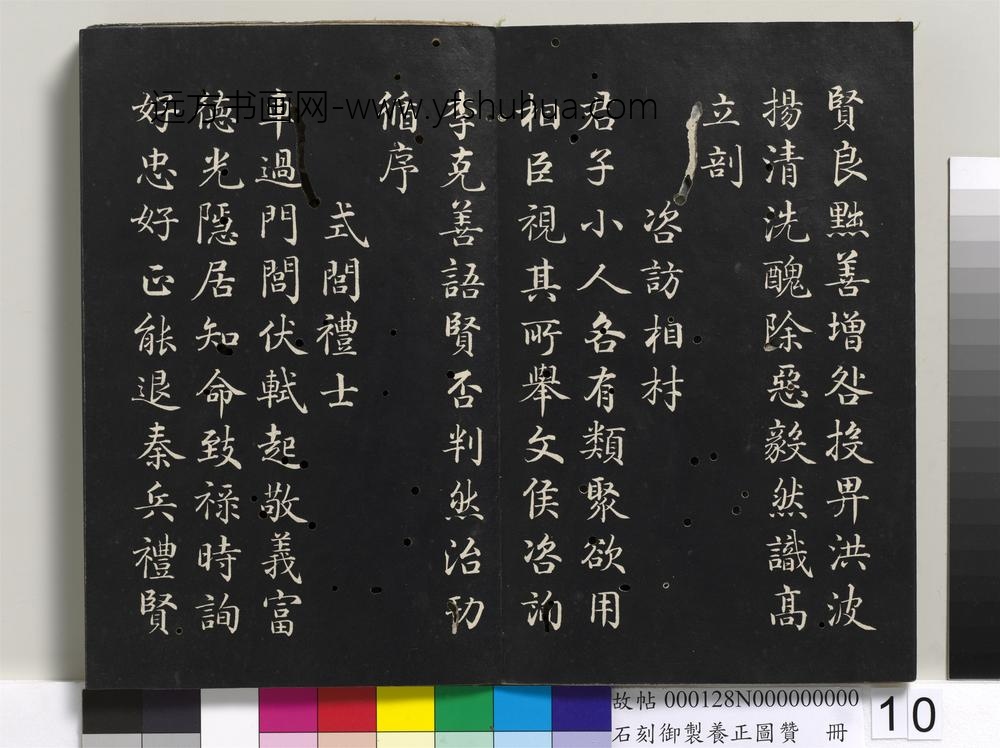 賢良黜善增咎投畀洪波
揚清洗醜除惡毅然識高
立剖
咨訪相材
君子小人各有類聚欲用
相臣視其所舉文侯咨詢
李克善語賢否判然治功
循序
式閭禮士
車過門閭伏軾起敬義富
德光隱居知命致祿時詢
好忠好正能退秦兵禮賢
远方书画网-www.yfshuhua.com
故帖 000128N000000000
石刻御製養正圖贊 冊
10